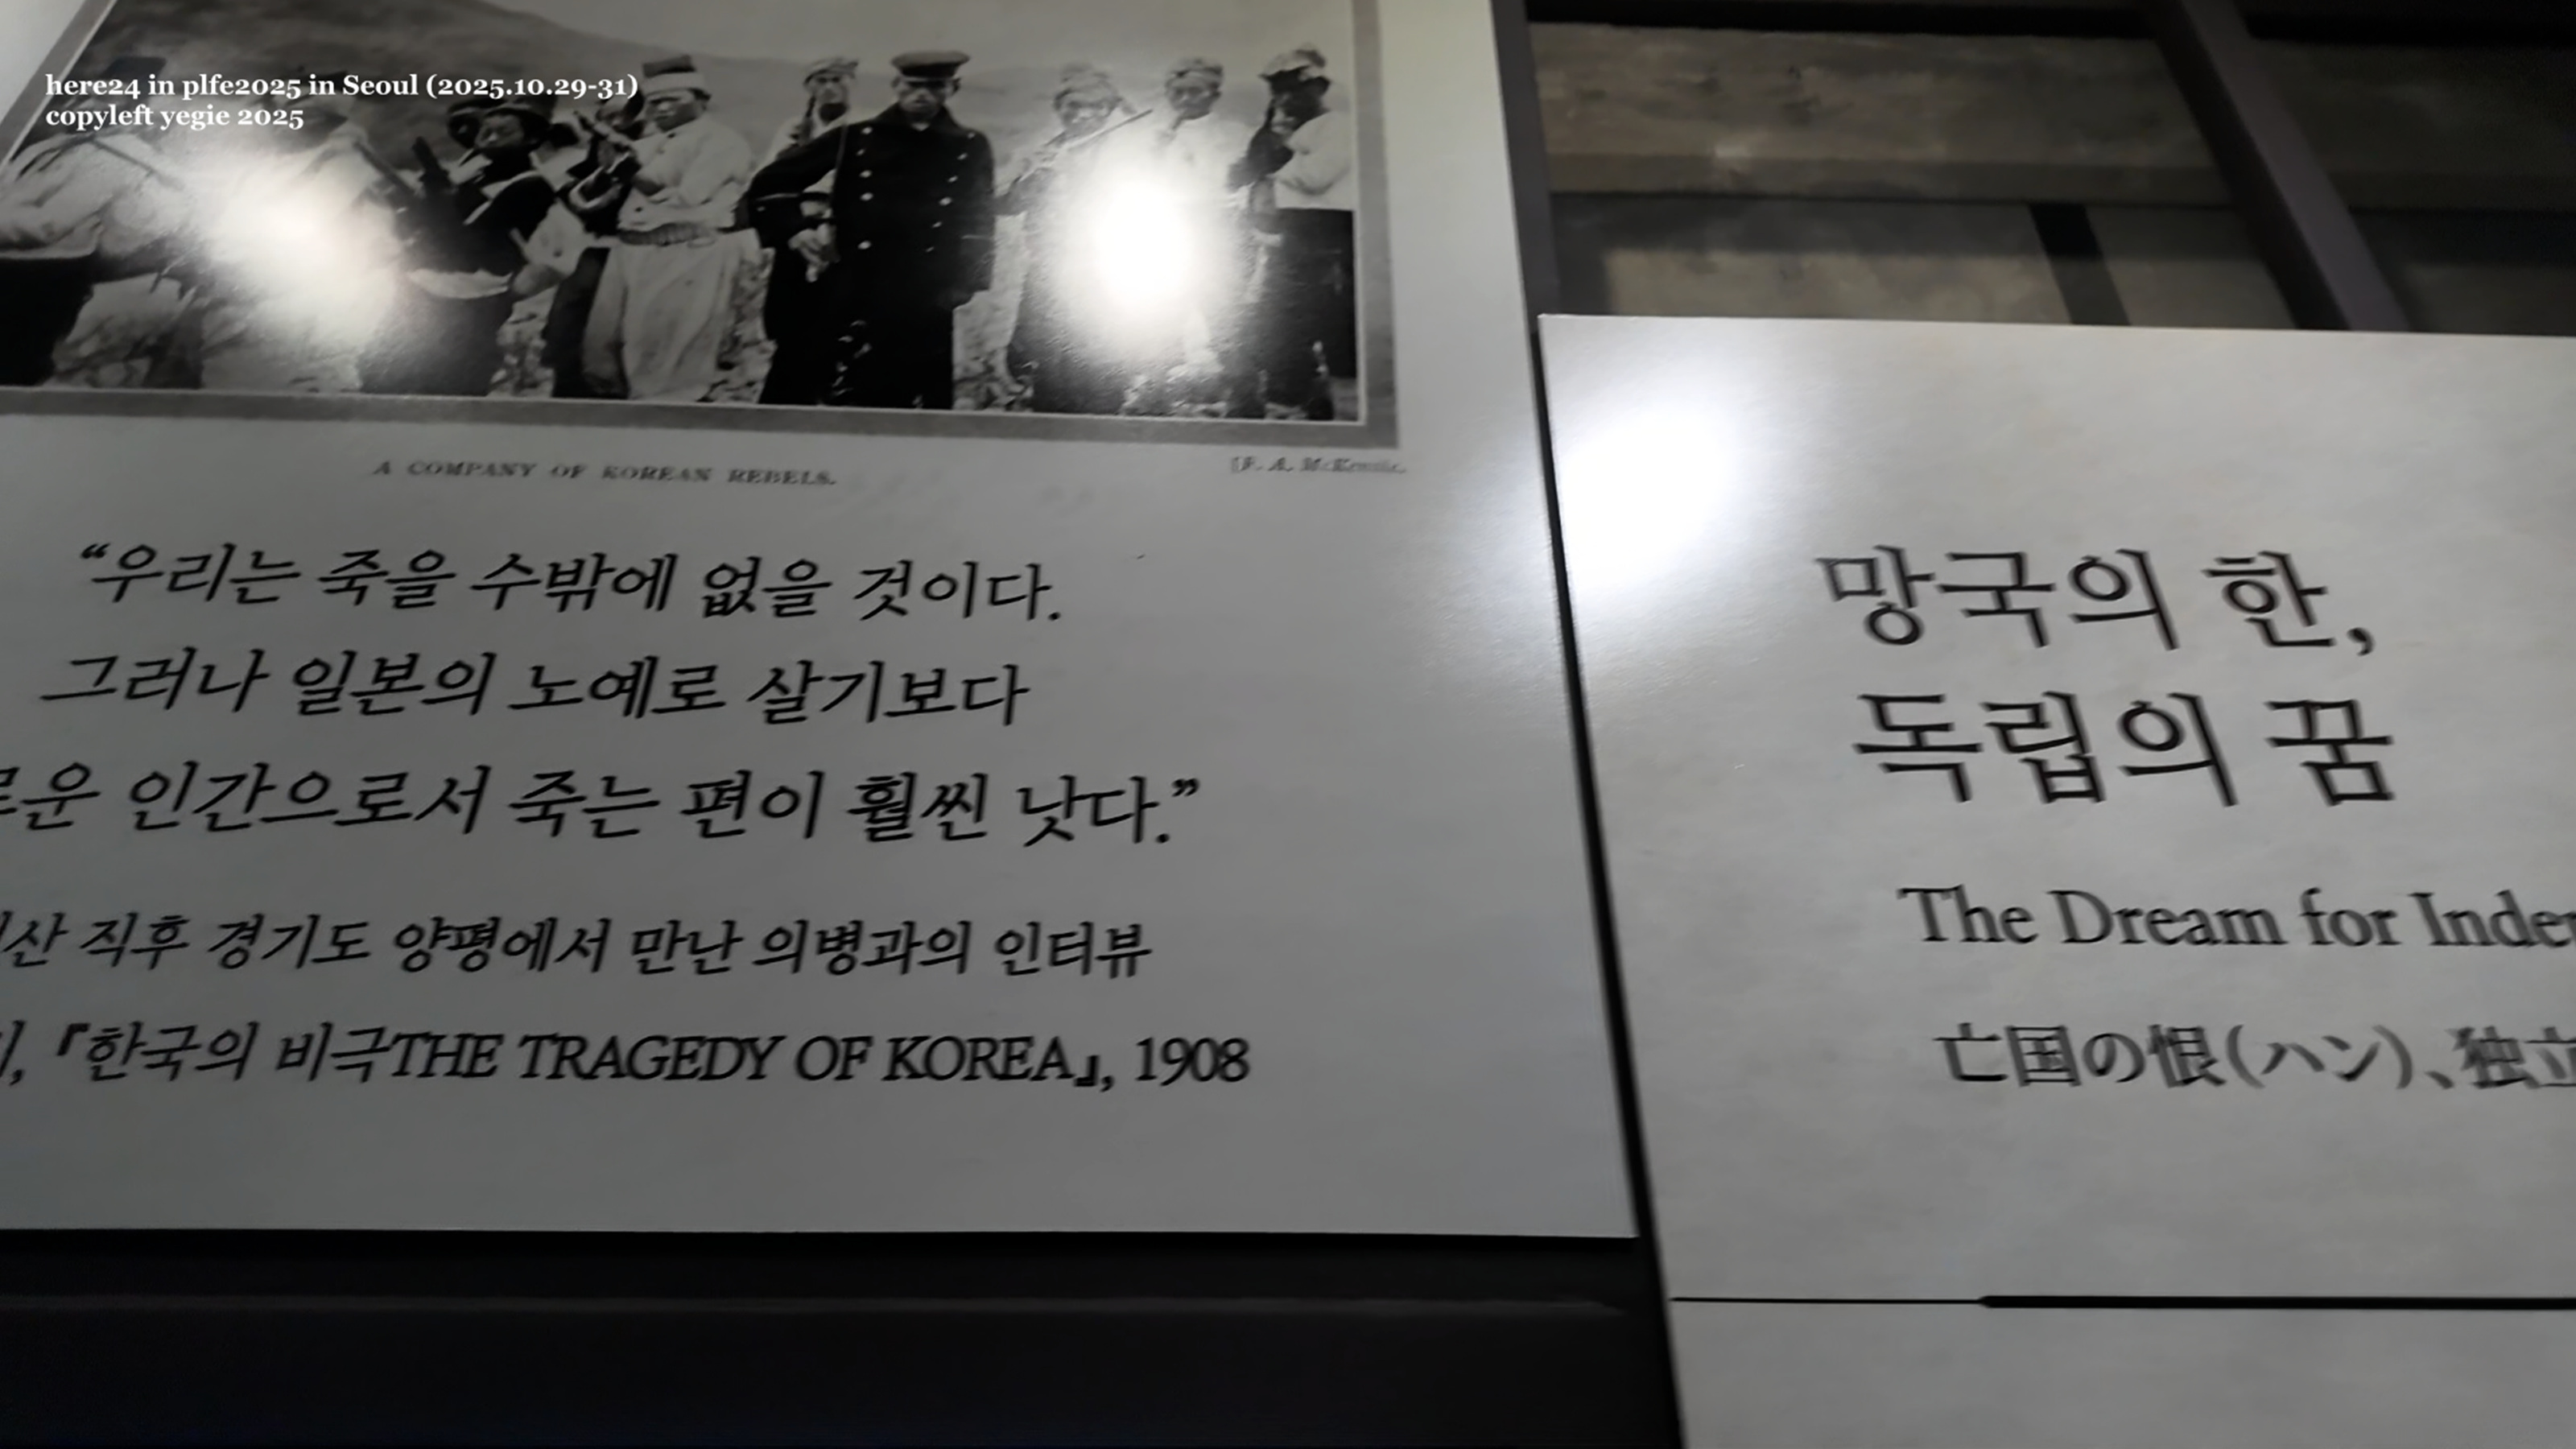 here24 in plfe2025 in Seoul (2025.10.29-31)
copyleft yegie 2025
A COMPANY OF KOREAN REBELS.
[F. A. McKenzie.
“우리는 죽을 수밖에 없을 것이다.
그러나 일본의 노예로 살기보다
운 인간으로서 죽는 편이 훨씬 낫다.”
산 직후 경기도 양평에서 만난 의병과의 인터뷰
『한국의 비극THE TRAGEDY OF KOREA』, 1908
망국의 한,
독립의 꿈
The Dream for Inde
亡国の恨(ハン)、独立